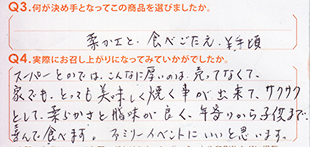 Q3.何が決め手となってこの商品を選びましたか。
柔かさと、食べごたえ、お手頃
Q4.実際にお召し上がりになってみていかがでしたか。
スーパーとかでは、こんなに厚いのは、売ってなくて、
家でも、とっても美味しく焼く事が出来て、サクサク
として、柔らかさと脂味が良く、年寄りから子供まで、
喜んで食べます。ファミリーイベントにいいと思います。